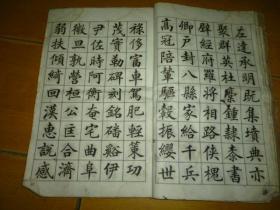 左達承明既集墳典亦
聚群英杜稾鍾隸漆書
壁經府羅將相路俠槐
卿戶封八縣家給千兵
高冠陪輦驅轂振纓世
祿侈富車駕肥輕策功
茂實勒碑刻銘磻谿伊
尹佐時阿衡奄宅曲阜
微旦孰營桓公匡合濟
弱扶傾綺回漢惠說感